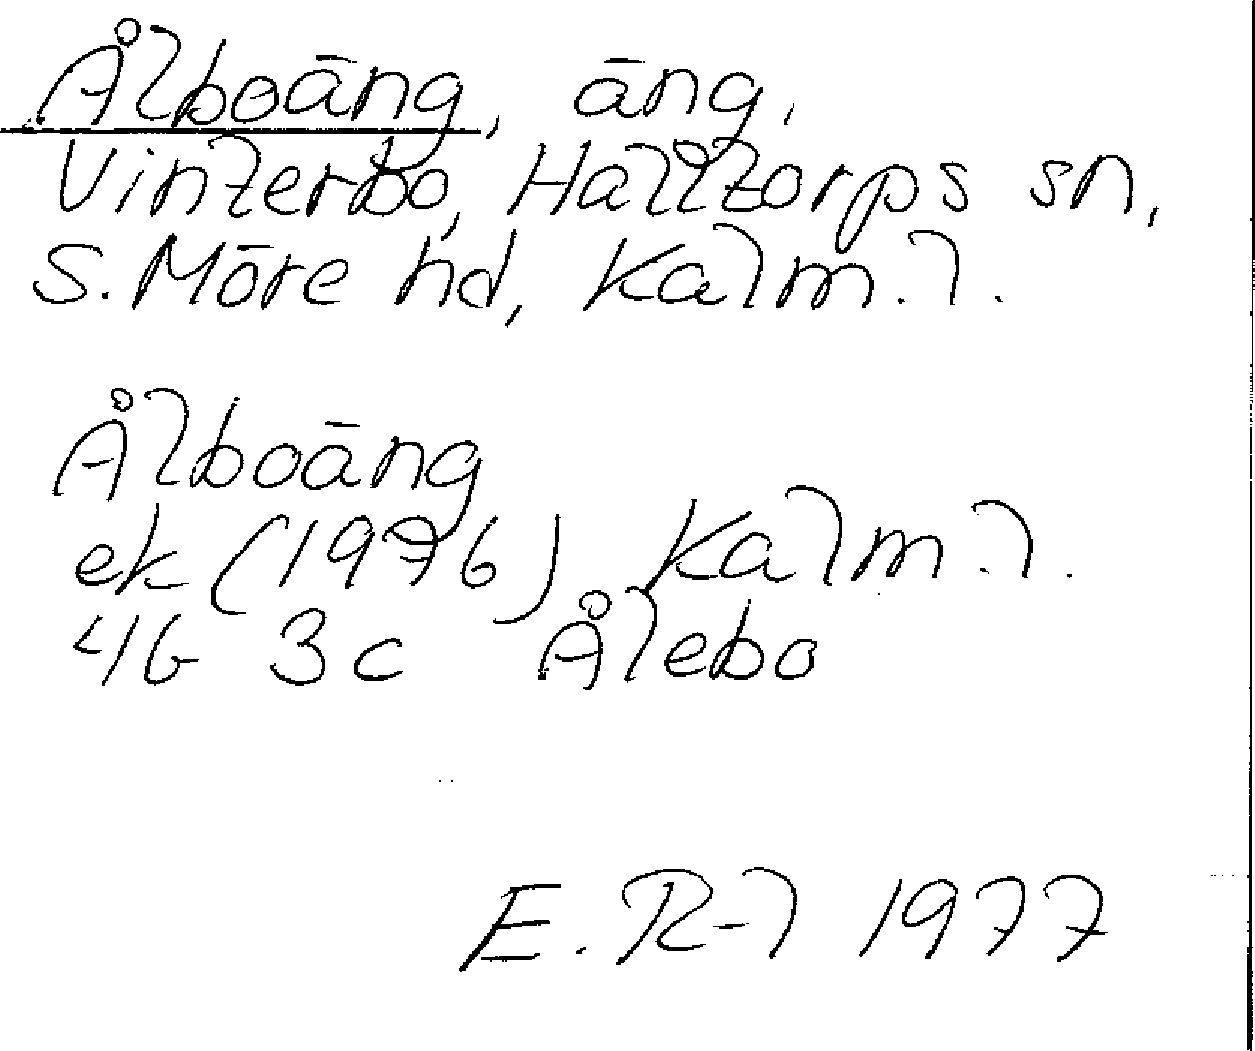 Ålboäng, äng,
Vinterbo, Halltorps sn,
S. Möre hd, Kalm. l.
Ålboäng
ek (1976) Kalm. l.
4G 3c Ålebo
E. R-l 1977